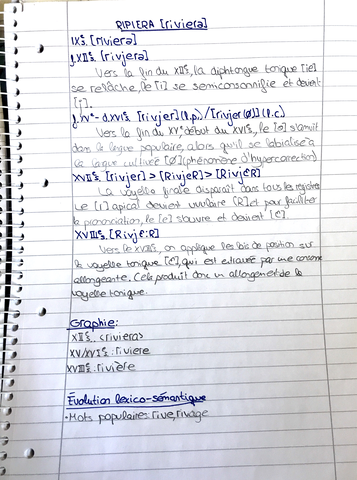 RIPIERA [rivierə]
IXe s. [rivierə]
f. XIIe s. [rivjerə]
Vers la fin du XIIe s, la diphtongue tonique [ie]
se relâche, le [i] se semiconsonnifie et devient
[j].
f. XVe - d. XVIe s. [rivjer] (l.p.) / [rivjer(ø)] (l.c)
Vers la fin du XVe début du XVIe s, le [ə] s'amuït
dans la langue populaire, alors qu'il se labialise à
la langue cultivée [ø] (phénomène d'hypercorrection)
XVIIe s. [rivjer] > [RivjeR] > [RivjƐR]
La voyelle finale disparaît dans tous les registres
Le [r] apical devient uvulaire [R] et pour faciliter
la prononciation, le [e] s'ouvre et devient [Ɛ].
XVIIIe s. [RivjƐ:R]
Vers le XVIIIe s, on applique les lois de position sur
la voyelle tonique [Ɛ], qui est entravée par une consonne
allongeante. Cela produit donc un allongement de la
voyelle tonique.
Graphie:
XIIe s. <riviera>
XV/XVIe s: riviere
XVIIIe s: rivière
Évolution lexico-sémantique
-Mots populaires: rive, rivage